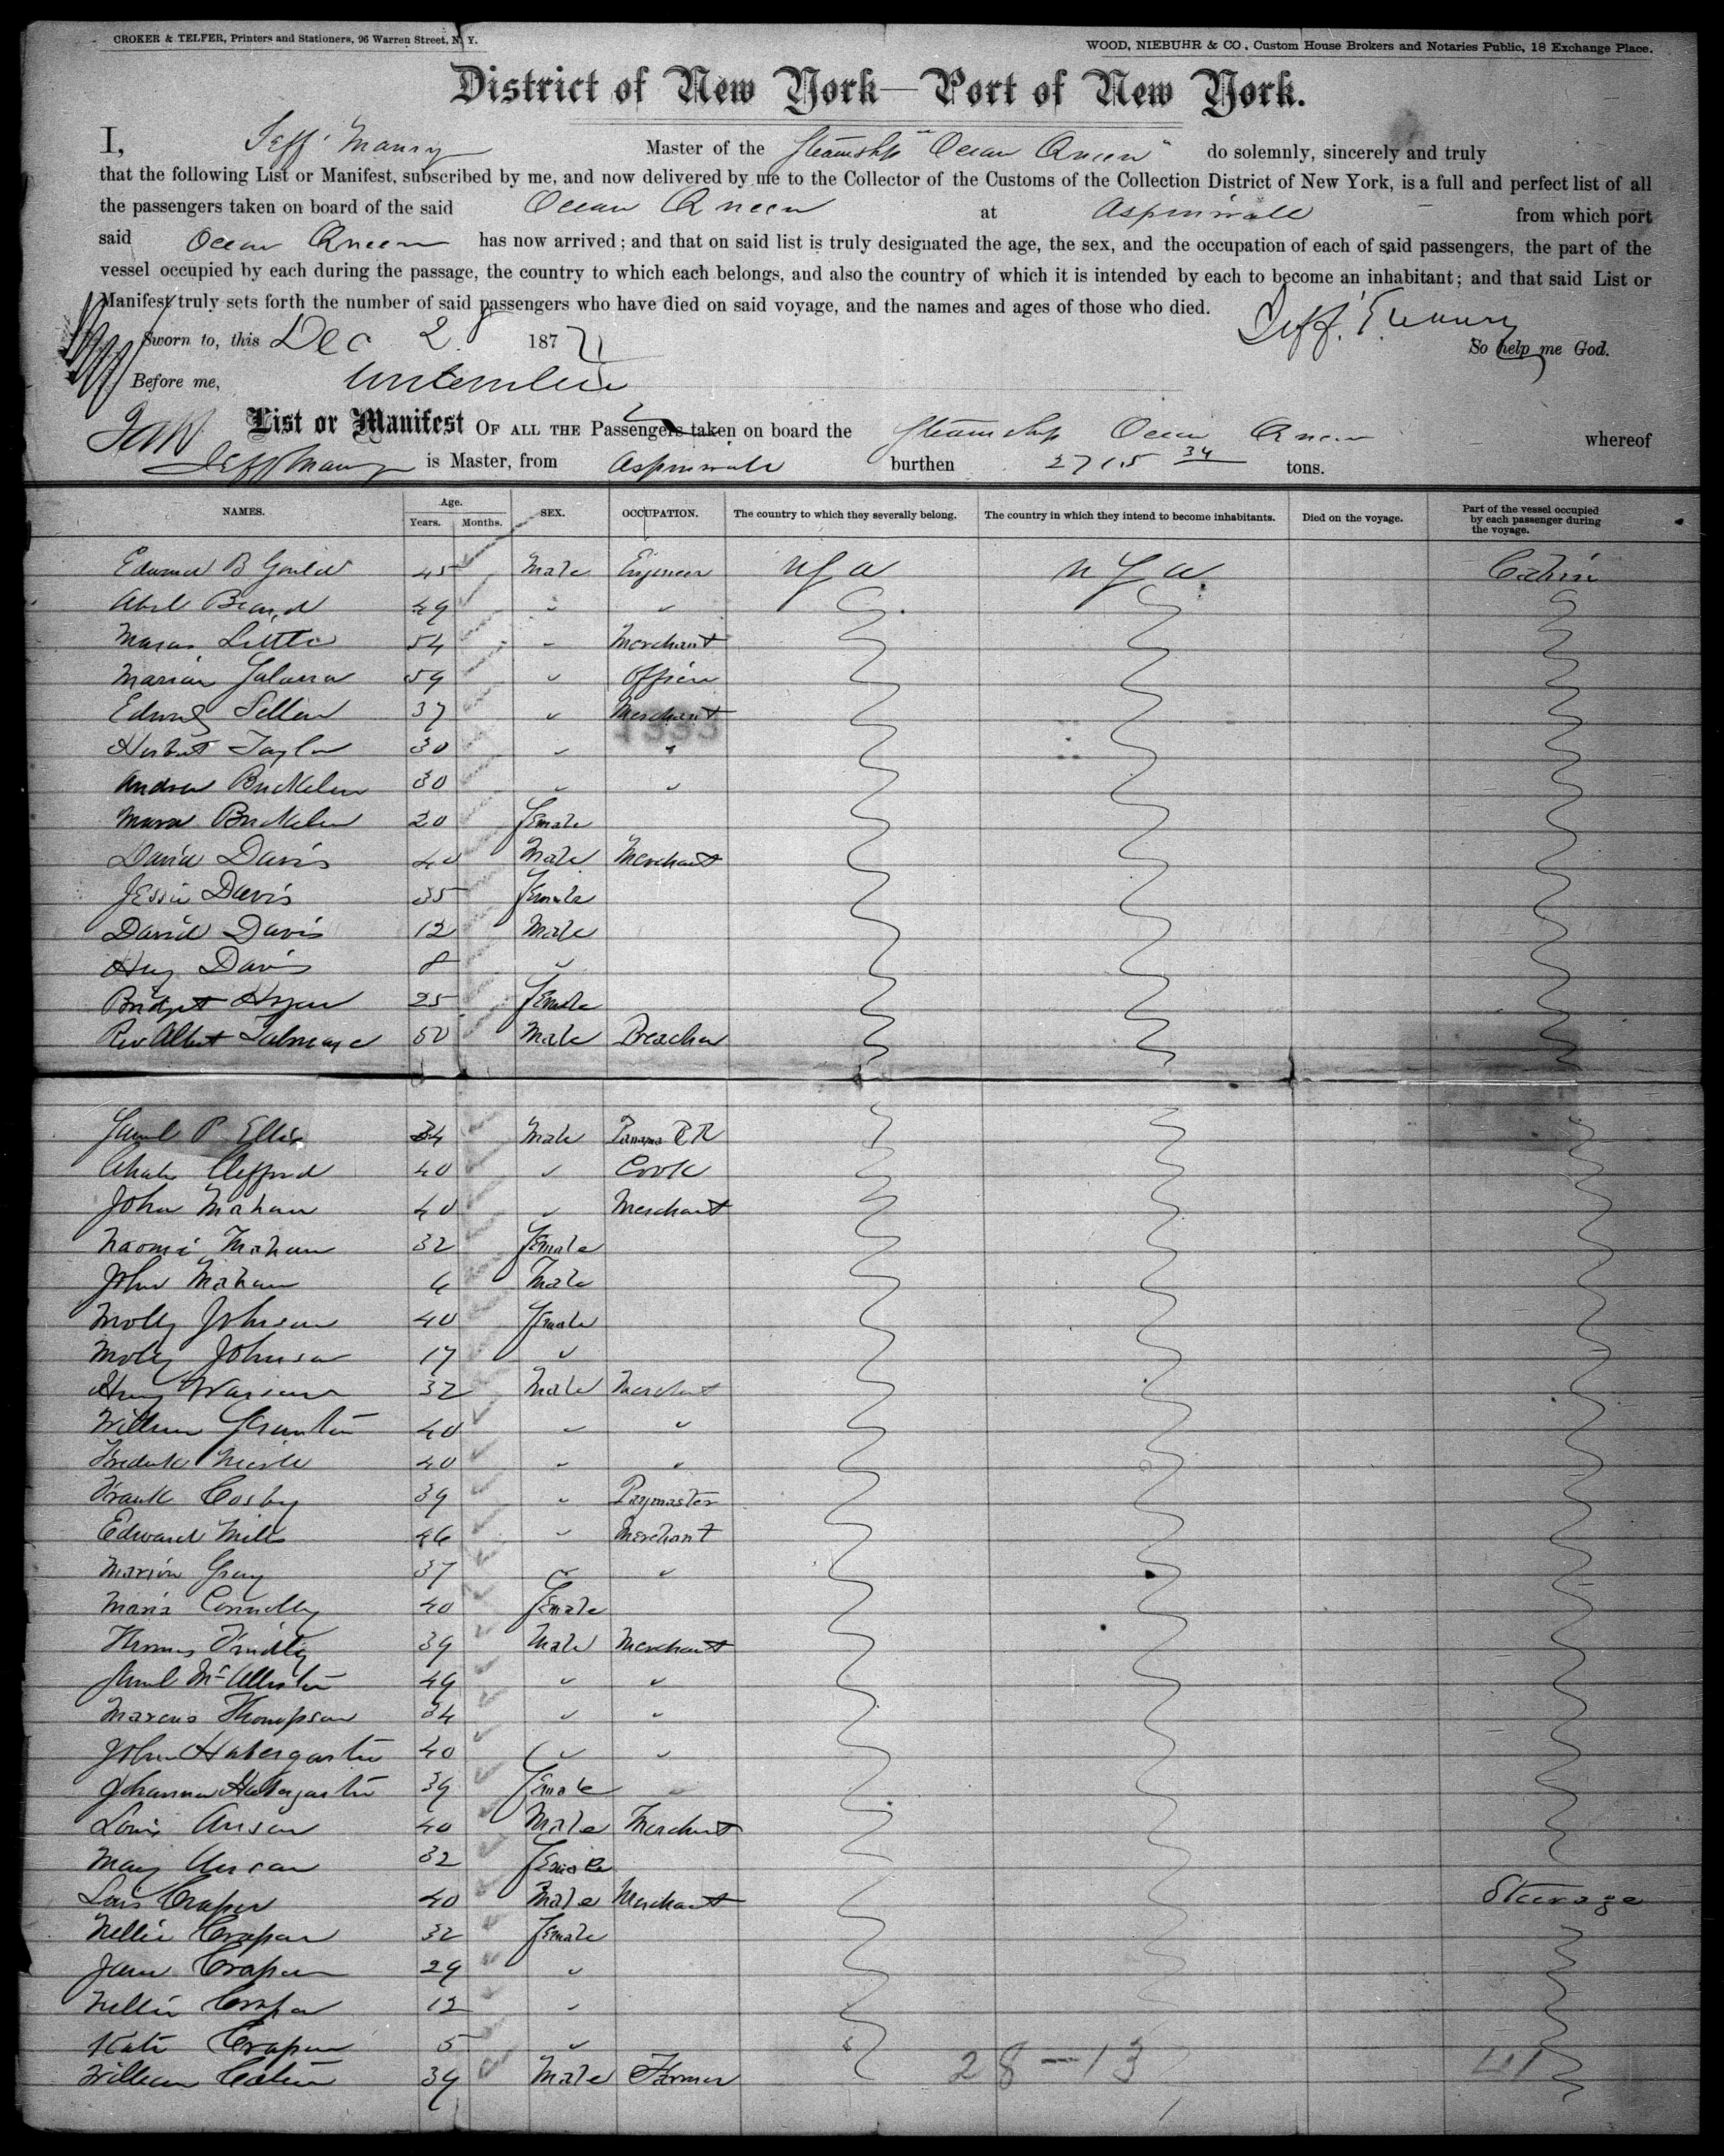 CROKER & TELFER, Printers and Stationers, 96 Warren Street, N. Y.
WOOD, NIEBUHR & CO., Custom House Brokers and Notaries Public, 18 Exchange Place.
District of New York—Port of New York.
I, Jeff Maury Master of the Steamship "Ocean Queen" do solemnly, sincerely and truly
that the following List or Manifest, subscribed by me, and now delivered by me to the Collector of the Customs of the Collection District of New York, is a full and perfect list of all
the passengers taken on board of the said Ocean Queen at Aspinwall from which port
said Ocean Queen has now arrived; and that on said list is truly designated the age, the sex, and the occupation of each of said passengers, the part of the
vessel occupied by each during the passage, the country to which each belongs, and also the country of which it is intended by each to become an inhabitant; and that said List or
Manifest truly sets forth the number of said passengers who have died on said voyage, and the names and ages of those who died.
Jeff. Maury
Sworn to, this Dec 2 187 So help me God.
Before me,
List or Manifest OF ALL THE Passengers taken on board the Steamship Ocean Queen whereof
Jeff Maury is Master, from Aspinwall burthen 2715 34 tons.
NAMES. Age. Years. Months. SEX. OCCUPATION. The country to which they severally belong. The country in which they intend to become inhabitants. Died on the voyage. Part of the vessel occupied by each passenger during the voyage.
Edward B Gould 45 Male Engineer U S A U S A Cabin
Abel Beard 49 " "
Little 54 " Merchant
59 " Officer
Edward 37 " Merchant
1333
Herbert Taylor 30 " "
Andrew 30 " "
20 Female
David Davis 40 Male Merchant
Jessie Davis 35 Female
David Davis 12 Male
Davis 8 "
Bridget 25 Female
Rev Albert Talmage 50 Male Preacher
Saml P Ellis 34 Male Panama R R
Charles Clifford 40 " Cook
John Mahan 40 " Merchant
Naomi Mahan 32 Female
John Mahan 6 Male
Molly Johnson 40 Female
Molly Johnson 17 "
Henry 32 Male Merchant
William 40 " "
Frederick 40 " "
Frank Cosby 39 " Paymaster
Edward Mills 46 " Merchant
Marion Gray 37 " "
Maria Connolly 40 Female
Thomas 39 Male Merchant
Saml McAllister 49 " "
Marcus Thompson 34 " "
John Habergarten 40 " "
Johanna Habergarten 39 Female "
Louis 40 Male Merchant
Mary 32 Female
Louis Craper 40 Male Merchant Steerage
Nellie Craper 32 Female
Jane Craper 29 "
Nellie Craper 12 "
Kate Craper 5 "
William 39 Male Farmer
28-13 41